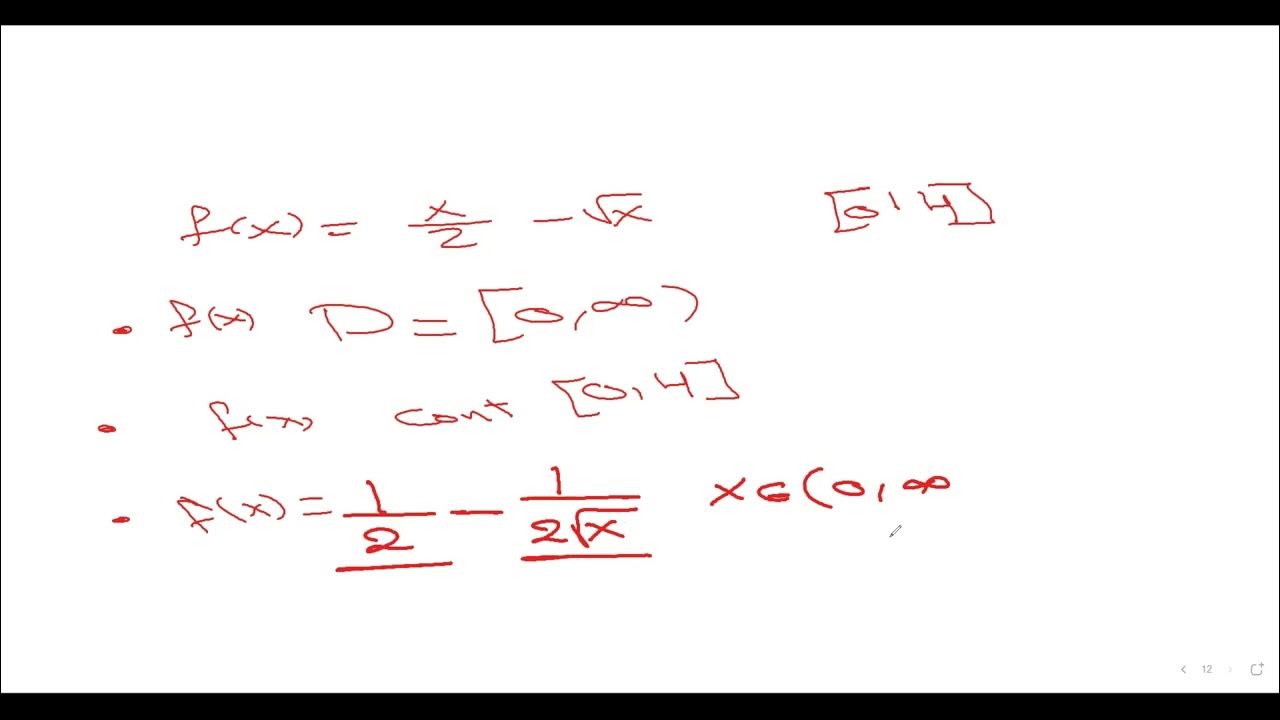 f(x) = x/2 - √x [0,4]
• f(x) D = [0,∞)
• f(x) cont [0,4]
• f(x) = 1/2 - 1/(2√x) x∈(0,∞
< 12 >